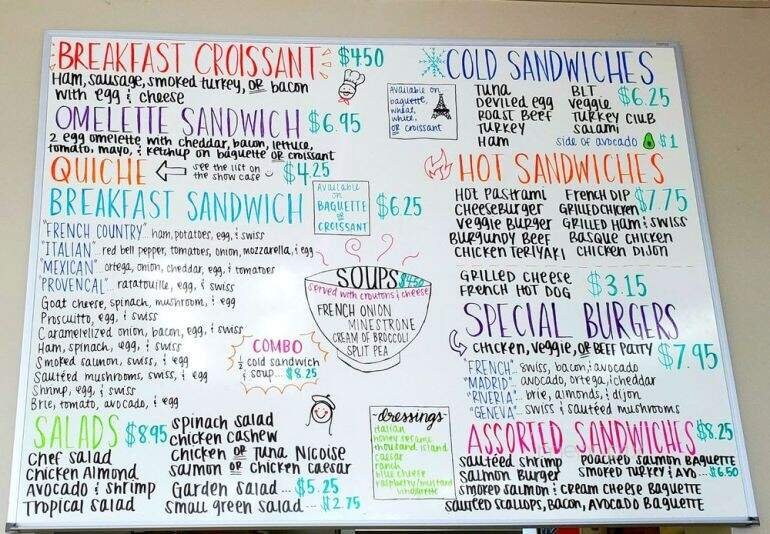 BREAKFAST CROISSANT $4.50
Ham, sausage, smoked turkey, OR bacon
with egg & cheese
OMELETTE SANDWICH $6.95
2 egg omelette with cheddar, bacon, lettuce,
tomato, mayo, & ketchup on baguette OR croissant
QUICHE see the list on the show case $4.25
BREAKFAST SANDWICH $6.25
Available
on
BAGUETTE
OR
CROISSANT
"FRENCH COUNTRY" ham, potatoes, egg, & swiss
"ITALIAN" red bell pepper, tomatoes, onion, mozzarella, & egg
"MEXICAN" ortega, onion, cheddar, egg, & tomatoes
"PROVENCAL" ratatouille, egg, & swiss
Goat cheese, spinach, mushroom, & egg
Proscuitto, egg, & swiss
Caramelelized onion, bacon, egg, & swiss
Ham, spinach, egg, & swiss
Smoked salmon, swiss, & egg
Sautéed mushrooms, swiss, & egg
Shrimp, egg, & swiss
Brie, tomato, avocado, & egg
COMBO
1/2 cold sandwich
& soup... $8.25
SOUPS $4.50
served with croutons & cheese
FRENCH ONION
MINESTRONE
CREAM OF BROCCOLI
SPLIT PEA
SALADS $8.95
Chef salad
Chicken Almond
Avocado & Shrimp
Tropical salad
spinach salad
chicken cashew
chicken OR Tuna Nicoise
salmon OR chicken caesar
Garden salad... $5.25
small green salad... $2.75
-dressings-
italian
honey sesame
thousand island
caesar
ranch
blue cheese
raspberry/mustard
vinaigrette
COLD SANDWICHES
Available on
baguette,
wheat,
white,
OR croissant
Tuna
Deviled egg
Roast Beef
Turkey
Ham
BLT
veggie
Turkey club
salami
$6.25
side of avocado $1
HOT SANDWICHES
Hot Pastrami
Cheeseburger
Veggie Burger
Burgundy Beef
Chicken Teriyaki
French Dip
Grilled Chicken
Grilled Ham & Swiss
Basque Chicken
Chicken Dijon
$7.75
Grilled Cheese
French Hot Dog
$3.15
SPECIAL BURGERS
Chicken, veggie, OR BEEF PATTY $7.95
"FRENCH" swiss, bacon, & avocado
"MADRID" avocado, ortega, & cheddar
"RIVERIA" brie, almonds, & dijon
"GENEVA" swiss & sautéed mushrooms
ASSORTED SANDWICHES $8.25
sauteed shrimp
Salmon Burger
Poached Salmon Baguette
Smoked Turkey & Avo... $6.50
Smoked Salmon & Cream Cheese Baguette
Sauteed Scallops, Bacon, Avocado Baguette